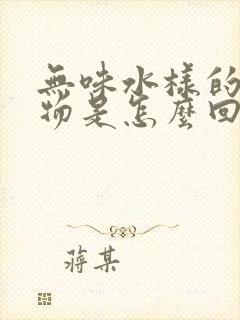 無味水樣的
物是怎麼回
蔣某